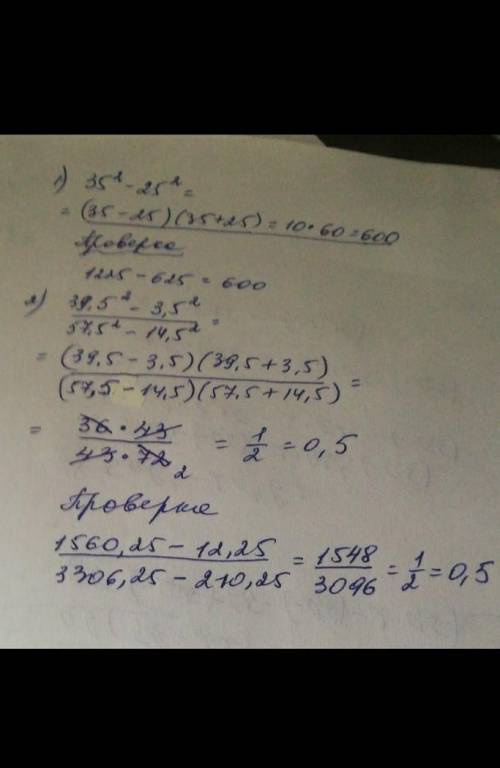 1) 35² - 25² =
= (35 - 25)(35 + 25) = 10 • 60 = 600
Проверка
1225 - 625 = 600
2) 39,5² - 3,5²
57,5² - 14,5² =
= (39,5 - 3,5)(39,5 + 3,5)
(57,5 - 14,5)(57,5 + 14,5) =
= 36 • 43
43 • 72 2 = 1/2 = 0,5
Проверка
1560,25 - 12,25
3306,25 - 210,25 = 1548/3096 = 1/2 = 0,5